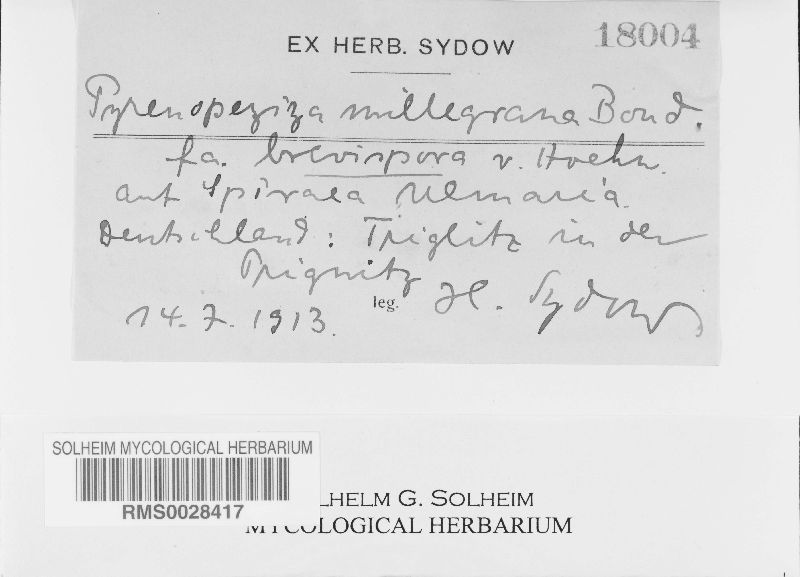 18004
EX HERB. SYDOW
Pyrenopeziza millegrana Boud.
fa. brevispora v. Hoehn.
auf Spiraea Ulmaria.
Deutschland: Triglitz in der
Prignitz
leg. H. Sydow
14.7.1913.
SOLHEIM MYCOLOGICAL HERBARIUM
RMS0028417
LHELM G. SOLHEIM
MYCOLOGICAL HERBARIUM